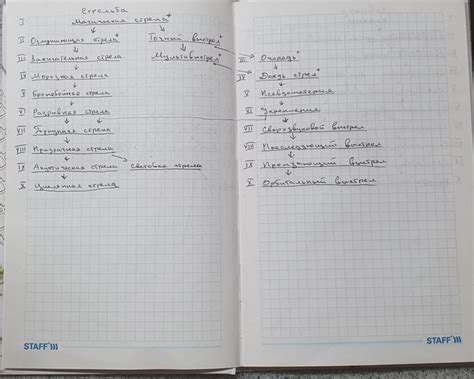 Стрельба
I Магическая стрела+
II Оглушающая стрела+ Точный выстрел+
III Зажигательная стрела Мультивыстрел+
IV Морозная стрела
V Бронебойная стрела
VI Разрывная стрела
VII стрела
VIII Призрачная стрела
IX стрела Световая стрела
X стрела
STAFF
III Очередь+
IV Дождь стрел+
V
VI
VII Сверхзвуковой выстрел
VIII Преследующий выстрел
IX Пронзающий выстрел
X Орбитальный выстрел
STAFF